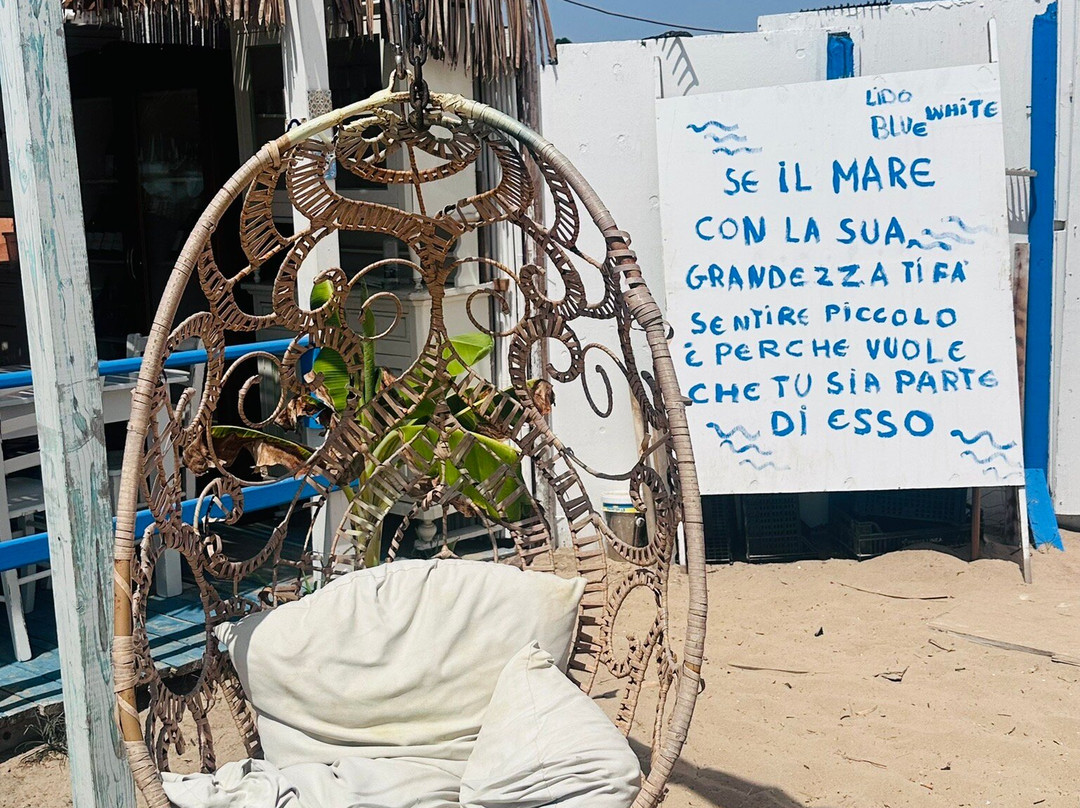 LIDO
BLUE WHITE
SE iL MARE
CON LA SUA
GRANDEZZA Ti FÀ
SENTIRE PICCOLO
È PERCHE VUOLE
CHE TU SiA PARTE
Di ESSO